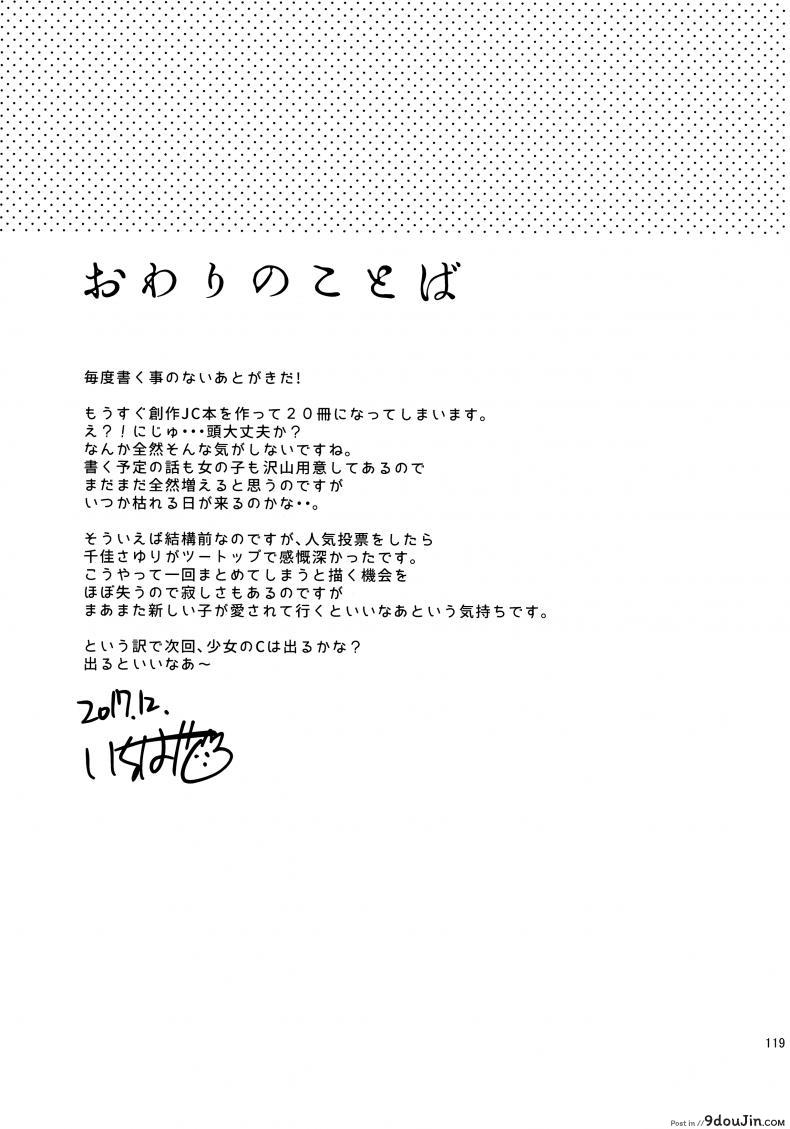 おわりのことば
毎度書く事のないあとがきだ!
もうすぐ創作JC本を作って20冊になってしまいます。
え?!にじゅ・・・頭大丈夫か?
なんか全然そんな気がしないですね。
書く予定の話も女の子も沢山用意してあるので
まだまだ全然増えると思うのですが
いつか枯れる日が来るのかな・・。
そういえば結構前なのですが、人気投票をしたら
千佳さゆりがツートップで感慨深かったです。
こうやって一回まとめてしまうと描く機会を
ほぼ失うので寂しさもあるのですが
まあまた新しい子が愛されて行くといいなあという気持ちです。
という訳で次回、少女のCは出るかな?
出るといいなあ～
2017.12.
119
Post in // 9douJin.COM